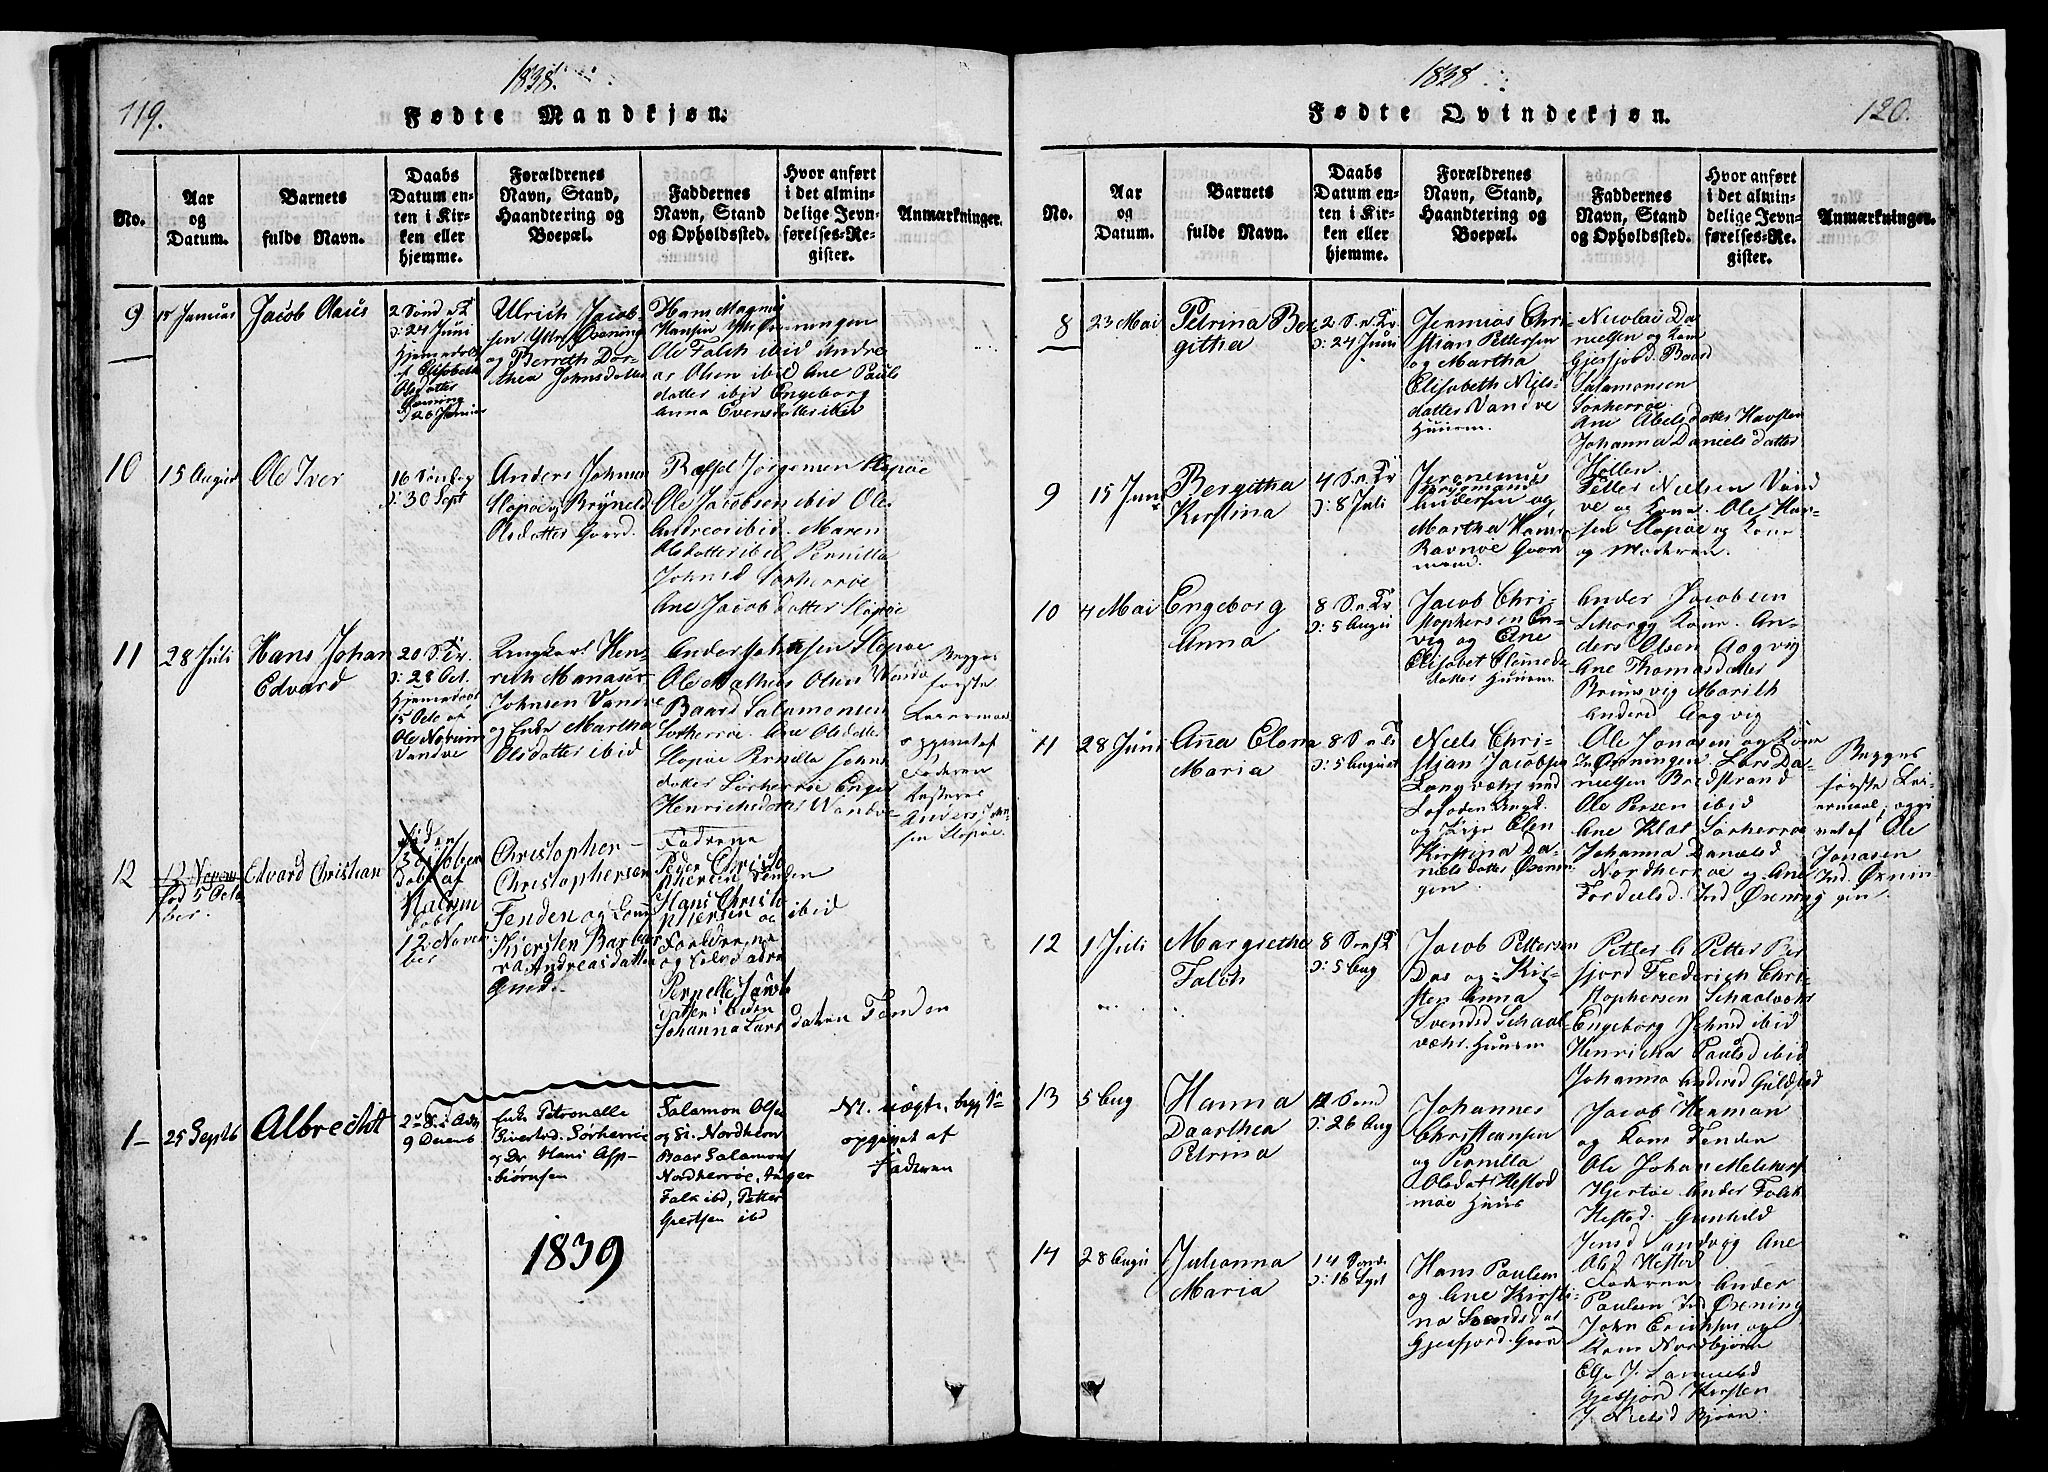 1838.
119.
Fødte Mandkjøn.
No.
Aar
og
Datum.
Barnets
fulde Navn.
Daabs
Datum en-
ten i Kir-
ken eller
hjemme.
Forældrenes
Navn, Stand,
Haandtering og
Boepæl.
Faddernes
Navn, Stand
og Opholdssted.
Hvor anført
i det almin-
delige Jevn-
førelses-Re-
gister.
Anmærkninger.
9
15 Januar
Jacob Olaus
2 Sönd e. Tr
24 Juni
Hjemmedøbt
af Elisabeth
Olsdatter
26 Januar
Ulrich Jacob
sen Ytre Øxening
og Berreth Dor-
thea Johnsdatter
Hans Magnus
Hansen Ytr Øxningen
Ole Falch ibid Andre
as Olsen ibid Ane Pauls
datter ibid Engeborg
Anna Eversdatter
10
15 August
Ole Iver
16 Söndag
30 Sept
Anders Johnsen
Slapøe og Brynild
Olsdatter Gaard.
Jørgensen Slapøe
Ole Jacobsen ibid Ole
Andreas ibid. Maren
Olsdatter ibid Pernilla
Johnsd Sørherrøe
Ane Jacobdatter Slapøe
11
28 Juli
Hans Johan
Edvard
20 S. e. Tr.
28 Oct.
Hjemmedøbt
15 Octo af
Ole
Vandve
Ungkarl Hen-
rich Manasse
Johnsen Vandve
og Enke Martha
Olsdatter ibid
Anders Johnsen Slapøe
Ole Mathias Olsen Vandve
Baard Salamonsen
Sørherrøe. Ane Olsdatter
Slapøe Pernilla Johns
datter Sørherrøe Enger
Henrichsdatter Vandve
Begges
første
Leiermaal
opgivet af
Faderen
Anders John-
sen Slapøe.
12
12 Novem
fød 5 Octo
ber.
Edvard Christian
12 Novem
ber
Christopher
Christophersen
Tenden og Kone
Kjersten Barba
ra Andreasdatter
Fadrene
Peder Christo
phersen Tenden
Hans Christo
phersen ibid
Forældrene
og
Pernelle Jacob
Johanna Lars daten Tenden
1
25 Septb
Albrecht
9 Decemb
Enke Petronelle
Sivertsd. Sørherrøe
og Dr. Hans Asp-
biørnsen
Salamon Olsen
og Nordherrøe
Baar Salamons
Nordherrøe, Inger
Falk ibd, Petter
Giertsen ibd
Nr. uægte, begg 1te
opgivet af
Faderen
1839
1838
120.
Fødte Qvindekjøn.
No.
Aar
og
Datum.
Barnets
fulde Navn.
Daabs
Datum en-
ten i Kir-
ken eller
hjemme.
Forældrenes
Navn, Stand,
Haandtering og
Boepæl.
Faddernes
Navn, Stand
og Opholdssted.
Hvor anført
i det almin-
delige Jevn-
førelses-Re-
gister.
Anmærkninger.
8
23 Mai
Petrina Ber
githa
2 S. e. Tr
24 Juni
Jermias Chri-
stian Pettersen
og Martha
Elisabeth Niels-
datter Vandve
Huusm.
Nicolai Da-
nielsen og Kone
Gjesfjord. Baard
Salamonsen
Sørherrøe.
Ane Abelsdatter Havsten
Johanna Danielsdatter
Hollen.
9
15 Juni
Bergitha
Kirstina
4 S. e. Tr
8 Juli
Jeronemus
Andersen og
Martha Hans
Ravnøe Gaard
mand.
Petter Nielsen Vand
ve og Kone. Ole Han-
sen Slapøe og Kone
og Moderen.
10
4 Mai
Engeborg
Anna
8 S. e. Tr
5 Augu
Jacob Chri-
stophersen
vig og Ane
Elisabet Clemeds
datter Huusm
Ander Jacobsen
og Kone. An-
ders Olsen Aagvig
Ane Thomasdatter
Brunsvig Marith
Andersd Aagvig
11
28 Juni
Ana Elena
Maria
8 S. e. Tr
5 August
Niels Chri-
stian Jacobsen
Langvær ved
Lofoden Ungk.
og Pige Elen
Kirstina Da-
nielsdatter Øxenin
gen
Ole Jonasen og Kone
In Øxningen. Lars Da-
nielsen Bredstrand
Ole Persen ibid
Ane Klat Sørherrøe
Johanna Danielsd
Nordherrøe og Ane
Tordelsd. Ind Øxening
Begges
første Lei-
ermaal, opgi
vet af Ole
Jonasen
Ind. Øxnin
gen.
12
1 Juli
Margrethe
Falch
8 S. e. T
5 Aug
Jacob Pettersen
Das og Kir-
sten Anna
Svendsd Schaal-
vær. Huusm
Petter Petter Ber
fjord Frederich Chri-
stophersen Schaalvær
Engeborg Johnsd ibid
Henricha Paulsd ibid
Johanna Andersd
13
5 Aug
Hanna
Daarthea
Petrina
12 Sönd
26 Aug
Johannes
Christiansen
og Pernilla
Olsdat Hestad
møe Huus
Jacob Herman
og Kone Tenden
Ole Johan
Hjertøe Ander Falch
Hestad. Gunhild
Jensd Sandvig Ane
Abs Hestad
14
28 Augu
Julianna
Maria
14 Sönd
16 Sept
Hans Paulsen
og Ane Kirsti-
na Svendsdat
Gjesfjord. Gaard
Faderen Ander
Paulsen Ind Øxening
John Erichsen og
Kone Nordbjørn
Samuelsd
Gjesfjord Kirsten
Nielsd Bjørn.